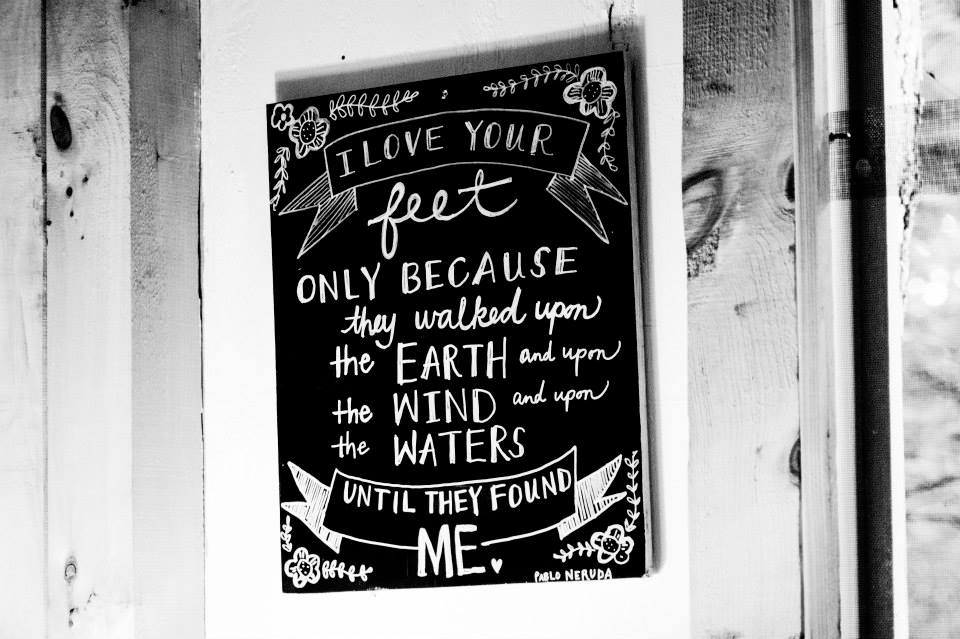 I LOVE YOUR
feet
ONLY BECAUSE
they walked upon
the EARTH and upon
the WIND and upon
the WATERS
UNTIL THEY FOUND
ME
PABLO NERUDA